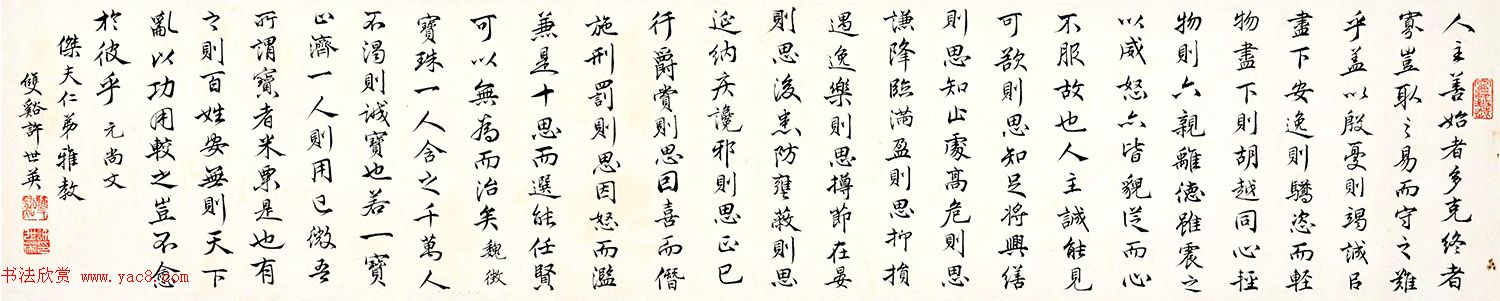 人主善始者多克終者
寡豈取之易而守之難
乎蓋以殷憂則竭誠以
盡下安逸則驕恣而輕
物盡下則胡越同心輕
物則六親離德雖震之
以威怒亦皆貌從而心
不服故也人主誠能見
可欲則思知足將興繕
則思知止處高危則思
謙降臨滿盈則思抑損
遇逸樂則思撙節在晏
則思後患防壅蔽則思
延納疾讒邪則思正己
行爵賞則思因喜而僭
施刑罰則思因怒而濫
兼是十思而選能任賢
可以無為而治矣 魏徵
寶珠一人含之千萬人
不渴則誠寶也若一寶
止濟一人則用已微吾
所謂寶者米粟是也有
之則百姓安無則天下
亂以功用較之豈不愈
於彼乎 元尚文
傑夫仁弟雅教
雙谿許世英
书法欣赏 www.yac8.com